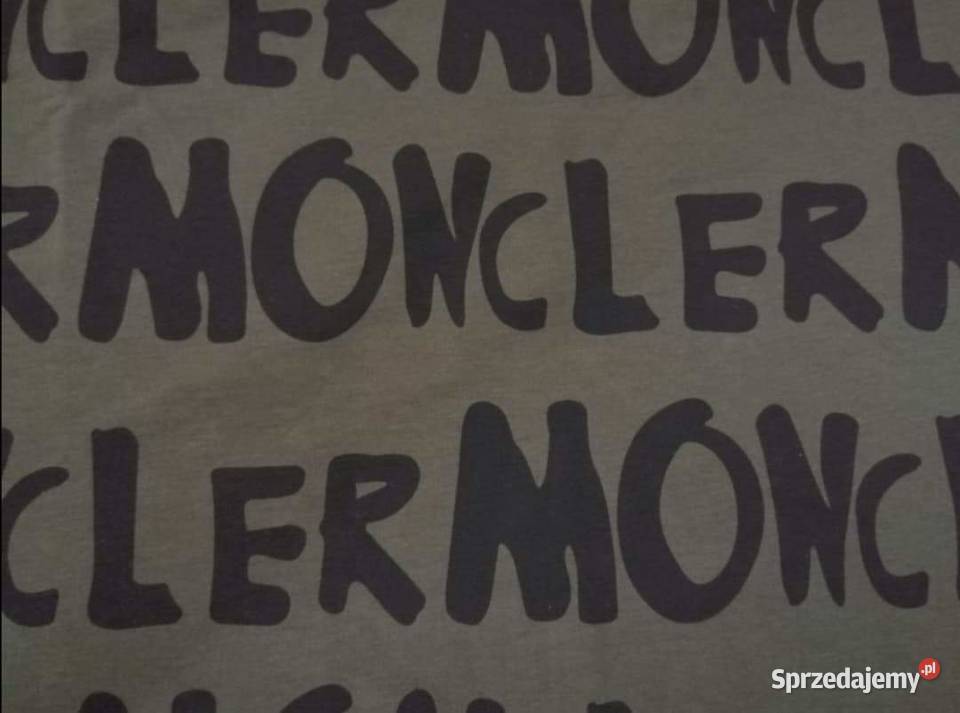 CLERMONCL
RMONCLERM
CLERMONC
Sprzedajemy.pl